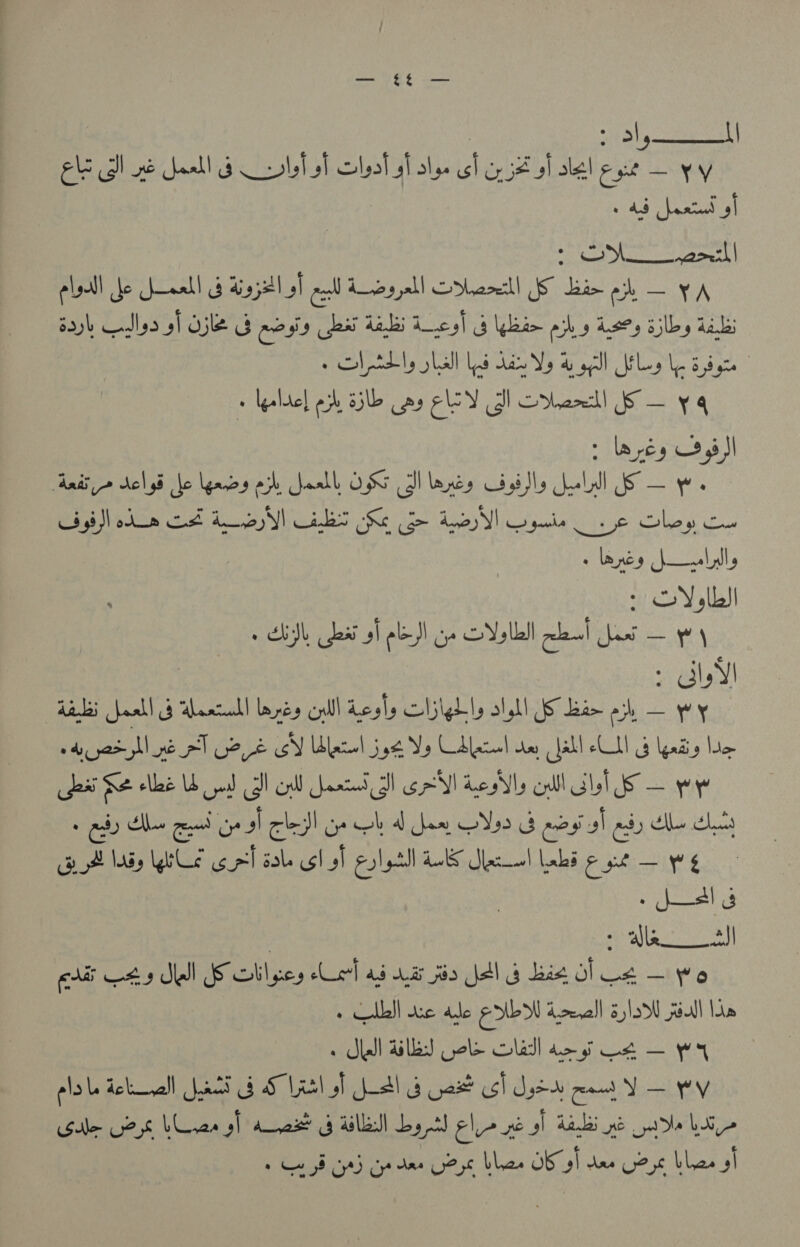 — ٤٤ —
المـــــواد :
٢٧ — ممنوع ايجاد أو تخزين أى مواد أو أدوات أو أوان فى المعمل غير التى تباع
أو تستعمل فيه .
المتحصــــلات :
٢٨ — يلزم حفظ كل المتحصلات المعروضـة للبيع أو المخزونة فى المعمـل على الدوام
نظيفة وطازة وصحية ويلزم حفظها فى أوعيـة نظيفة تغطى وتوضع فى مخازن أو دواليب باردة
متوفرة بها وسائل التهوية ولا ينفذ فيها الغبار والحشرات .
٢٩ — كل المتحصلات التى لا تباع وهى طازة يلزم إعدامها .
الرفوف وغيرها :
٣٠ — كل البراميل والرفوف وغيرها التى تكون بالمعمل يلزم وضعها على قواعد مرتفعة
ست بوصات عن منسوب الأرضية حتى يمكن تنظيف الأرضـية تحت هـذه الرفوف
والبراميـــل وغيرها .
الطاولات :
٣١ — تعمل أسطح الطاولات من الرخام أو تغطى بالزنك .
الأوانى :
٣٢ — يلزم حفظ كل المواد والجهازات وأوعية اللبن وغيرها المستعملة فى المعمل نظيفة
جدا ونقعها فى المـاء المغلى بعد استعمالهـا ولا يجوز استعمالها لأى غرض آخر غير المرخص به .
٣٣ — كل أوانى اللبن والأوعية الأخرى التى تستعمل للبن التى ليس لها غطاء محكم تغطى
بشبك سلك رفيع أو توضع فى دولاب يعمل له باب من الزجاج أو من نسيج سلك رفيع .
٣٤ — ممنوع قطعيا اسـتعمال كناسة الشوارع أو اى مادة أخرى تمـاثلها وقدا للحريق
فى المحــل .
الشــــغالة :
٣٥ — يجب أن يحفظ فى المحل دفتر تقيد فيه أسمـاء وعنوانات كل العمال ويجب تقديم
هذا الدفتر للادارة الصحية للاطلاع عليه عند الطلب .
٣٦ — يجب توجيه التفات خاص لنظافة العمال .
٣٧ — لا يسمح بدخول أى شخص فى المحـل أو اشتراكه فى تشغيل الصـناعة ما دام
مرتديا ملابس غير نظيفة أو غير مراع لشروط النظافة فى شخصـه أو مصـابا بمرض جلدى
أو مصابا بمرض معد أو كان مصابا بمرض معد من زمن قريب .